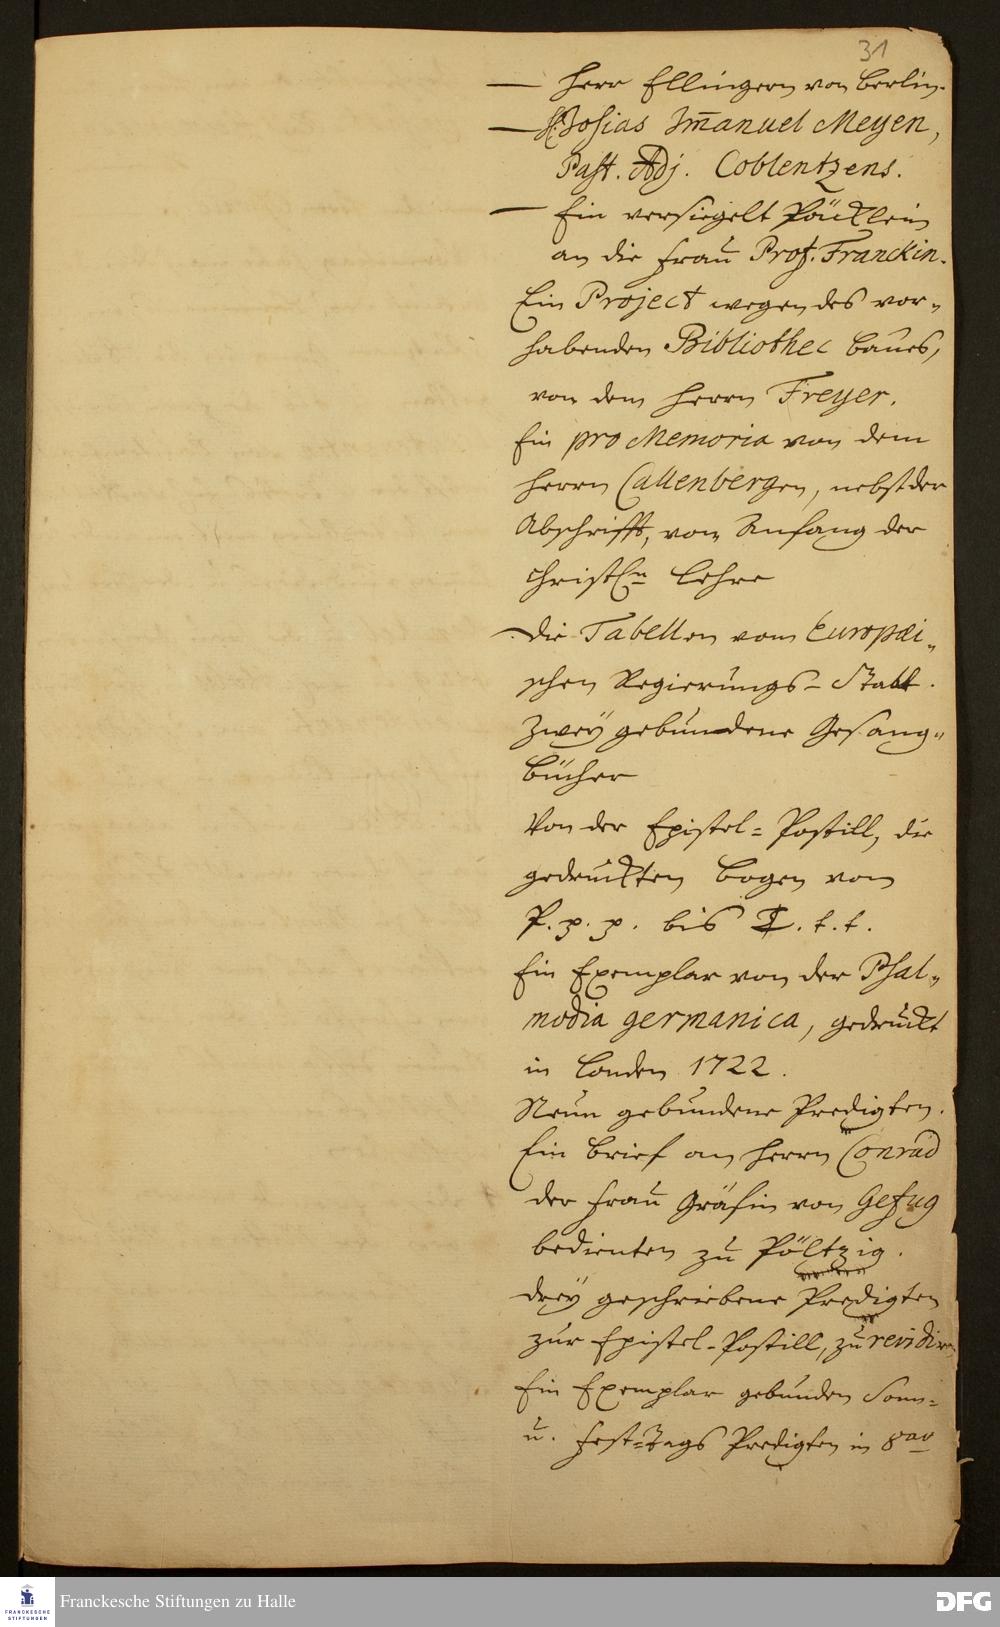 31
— Herr Ellingern von Berlin.
— H. Josias Im̄anuel Meyen,
Past. Adj. Coblentzens.
— Ein versiegelt Päcklein
an die Frau Prof. Franckin.
Ein Project wegen des vor-
habenden Bibliothec baues,
von dem Herrn Freyer.
Ein pro Memoria von dem
Herrn Callenbergen, nebst der
Abschrifft, vom Anfang der
christln Lehre
— die Tabellen vom Europæi-
schen Regierungs-Staat.
Zwey gebundene Gesang-
bücher
Von der Epistel-Postill, die
gedruckten bogen vom
P. p. p. bis T. t. t.
Ein Exemplar von der Psal-
modia germanica, gedruckt
in London 1722.
Neun gebundene Predigten.
Ein brief an Herrn Conrad
der Frau Gräfin von Gefug
bedienten zu Pöltzig.
drey geschriebene Predigten
zur Epistel-Postill, zu revidiren
Ein Exemplar gebunden Sonn-
u. Fest-Tags Predigten in 8vo
FRANCKESCHE STIFTUNGEN
Franckesche Stiftungen zu Halle
DFG